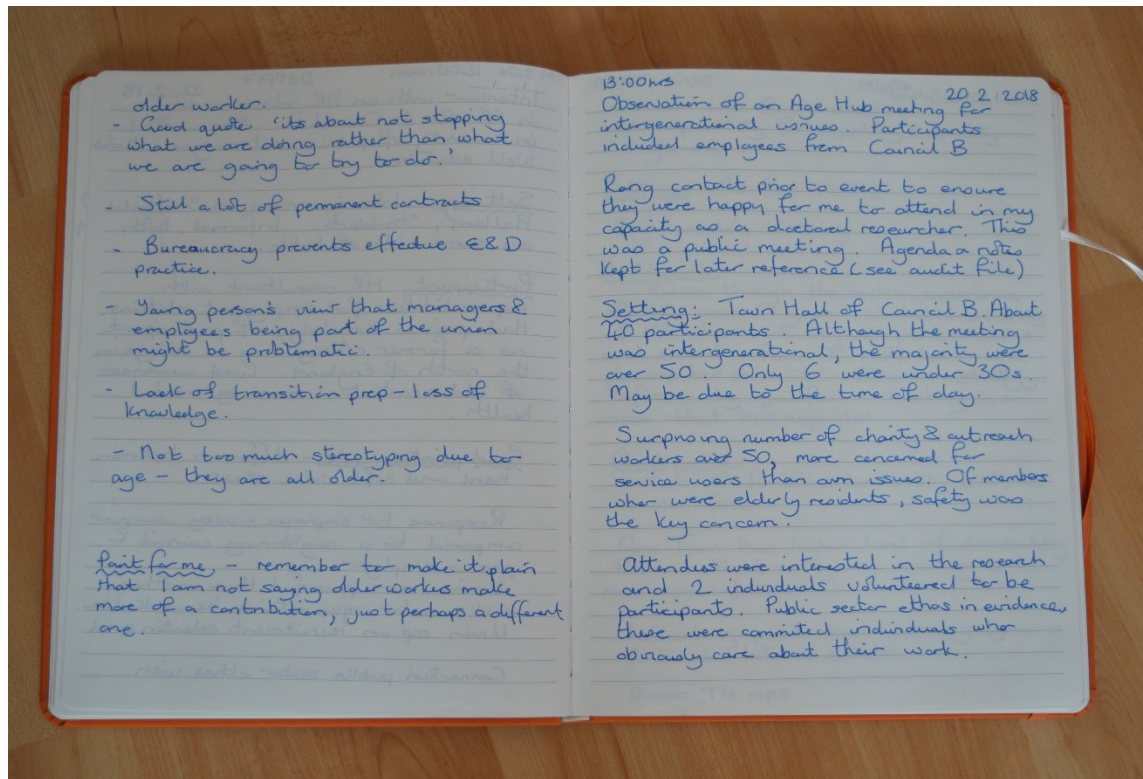 older worker.
- Good quote 'its about not stopping
what we are doing rather than what
we are going to try to do.'
- Still a lot of permanent contracts
- Bureaucracy prevents effective E&D
practice.
- Young person's view that managers &
employees being part of the union
might be problematic.
- Lack of transition prep - loss of
knowledge.
- Not too much stereotyping due to
age - they are all older.
Point for me - remember to make it plain
that I am not saying older workers make
more of a contribution, just perhaps a different
one.
13:00hrs
20.2.2018
Observation of an Age Hub meeting for
intergenerational issues. Participants
included employees from Council B
Rang contact prior to event to ensure
they were happy for me to attend in my
capacity as a doctoral researcher. This
was a public meeting. Agenda & notes
kept for later reference (see audit file)
Setting: Town Hall of Council B. About
40 participants. Although the meeting
was intergenerational, the majority were
over 50. Only 6 were under 30s.
May be due to the time of day.
Surprising number of charity & outreach
workers over 50, more concerned for
service users than own issues. Of members
who were elderly residents, safety was
the key concern.
Attendees were interested in the research
and 2 individuals volunteered to be
participants. Public sector ethos in evidence,
these were commited individuals who
obviously care about their work.